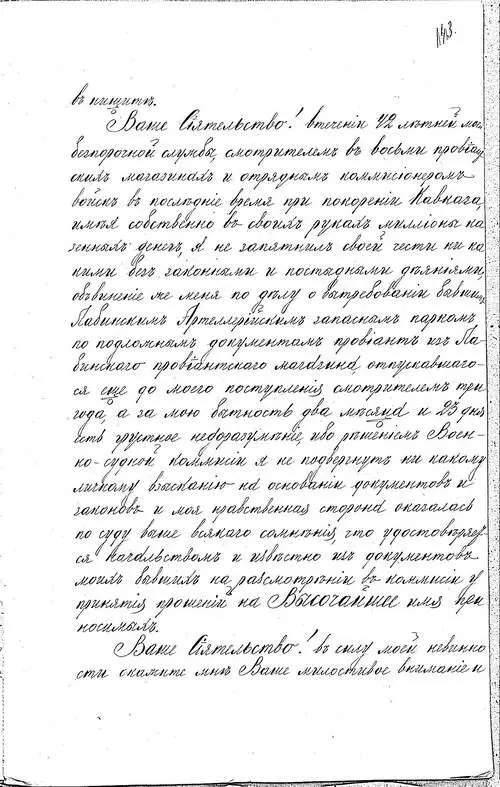 143.
въ нищитѣ.
Ваше Сіятельство! втеченіи 42 лѣтней моей
безпорочной службы, смотрителемъ въ восьми провіант
скихъ магазинахъ и отряднымъ коммисіонеромъ
войскъ въ послѣднее время при покореніи Кавказа,
имѣя собственно въ своихъ рукахъ милліоны ка
зенныхъ денегъ, я не запятнилъ своей чести ни ка
кими без законными и постыдными дѣяніями,
объвиненіе же меня по дѣлу о вытребованіи бывшимъ
Лабинскимъ Артеллерійскимъ запаснымъ паркомъ
по подложнымъ документамъ провіантъ изъ Ла-
бинскаго провіантскаго магазина, отпускавшаго-
ся еще до моего поступленія, смотрителемъ три
года, а за мою бытность два мѣсяца и 23 дня
есть грустное недоразумѣніе, ибо рѣшеніемъ Воен-
но-судной Коммисіи я не подвергнутъ ни какому
личному взысканію на основаніи документовъ и
законовъ и моя нравственная сторона оказалась
по суду выше всякаго сомнѣнія, что удостовѣряет
ся начальствомъ и извѣстно изъ документовъ
моихъ бывшихъ на разсмотрѣніи въ коммисіи у
принятія прошеній на Высочайшее имя при
носимыхъ.
Ваше Сіятельство! въ силу моей невинно
сти окажите мнѣ Ваше милостивое вниманіе и